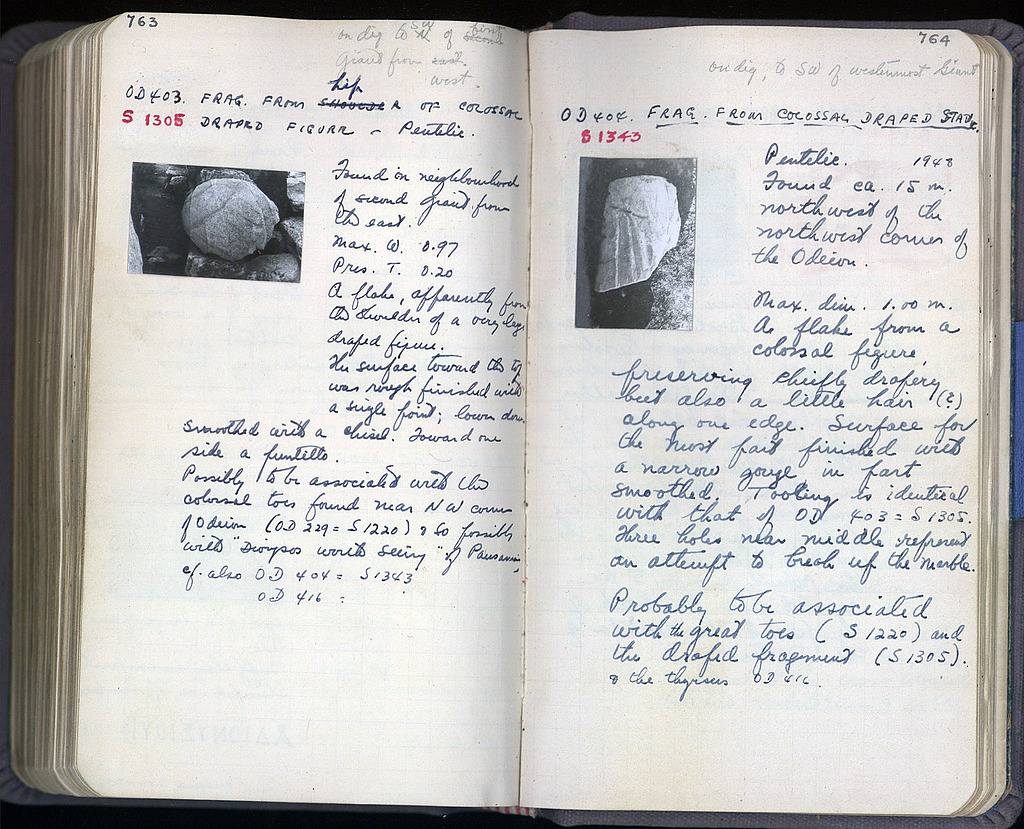 763
on dig to SW of first
Giant from east.
west.
hip
OD 403. FRAG. FROM SHOULDER OF COLOSSAL
S 1305 DRAPED FIGURE - Pentelic.
Found in neighbourhood
of second Giant from
the east.
Max. W. 0.97
Pres. T. 0.20
A flake, apparently from
the shoulder of a very large
draped figure.
The surface toward the top
was rough finished with
a single point; lower down
smoothed with a chisel. Toward one
side a puntello.
Possibly to be associated with the
colossal toes found near NW corner
of Odeion (OD 229 = S 1220) & so possibly
with "Dionysos worth seeing" of Pausanias,
cf. also OD 404 = S 1343
OD 416 =
764
on dig, to SW of westernmost Giant
OD 404. FRAG. FROM COLOSSAL DRAPED STATUE.
S 1343
Pentelic. 1948
Found ca. 15 m.
northwest of the
northwest corner of
the Odeion.
Max. dim. 1.00 m.
A flake from a
colossal figure,
preserving chiefly drapery
but also a little hair (?)
along one edge. Surface for
the most part finished with
a narrow gouge in part
smoothed. Tooling is identical
with that of OD 403 = S 1305.
Three holes near middle represent
an attempt to break up the marble.
Probably to be associated
with the great toes (S 1220) and
the draped fragment (S 1305).
& the thyrsus OD 416.